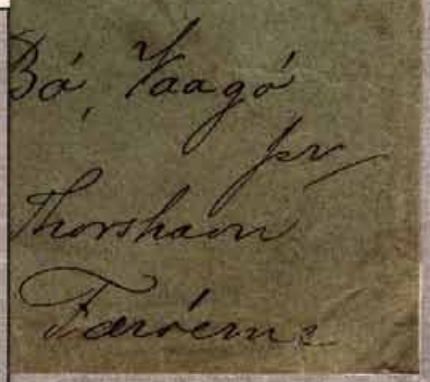 Bó, Vaagó
pr
Thorshavn
Færóerne